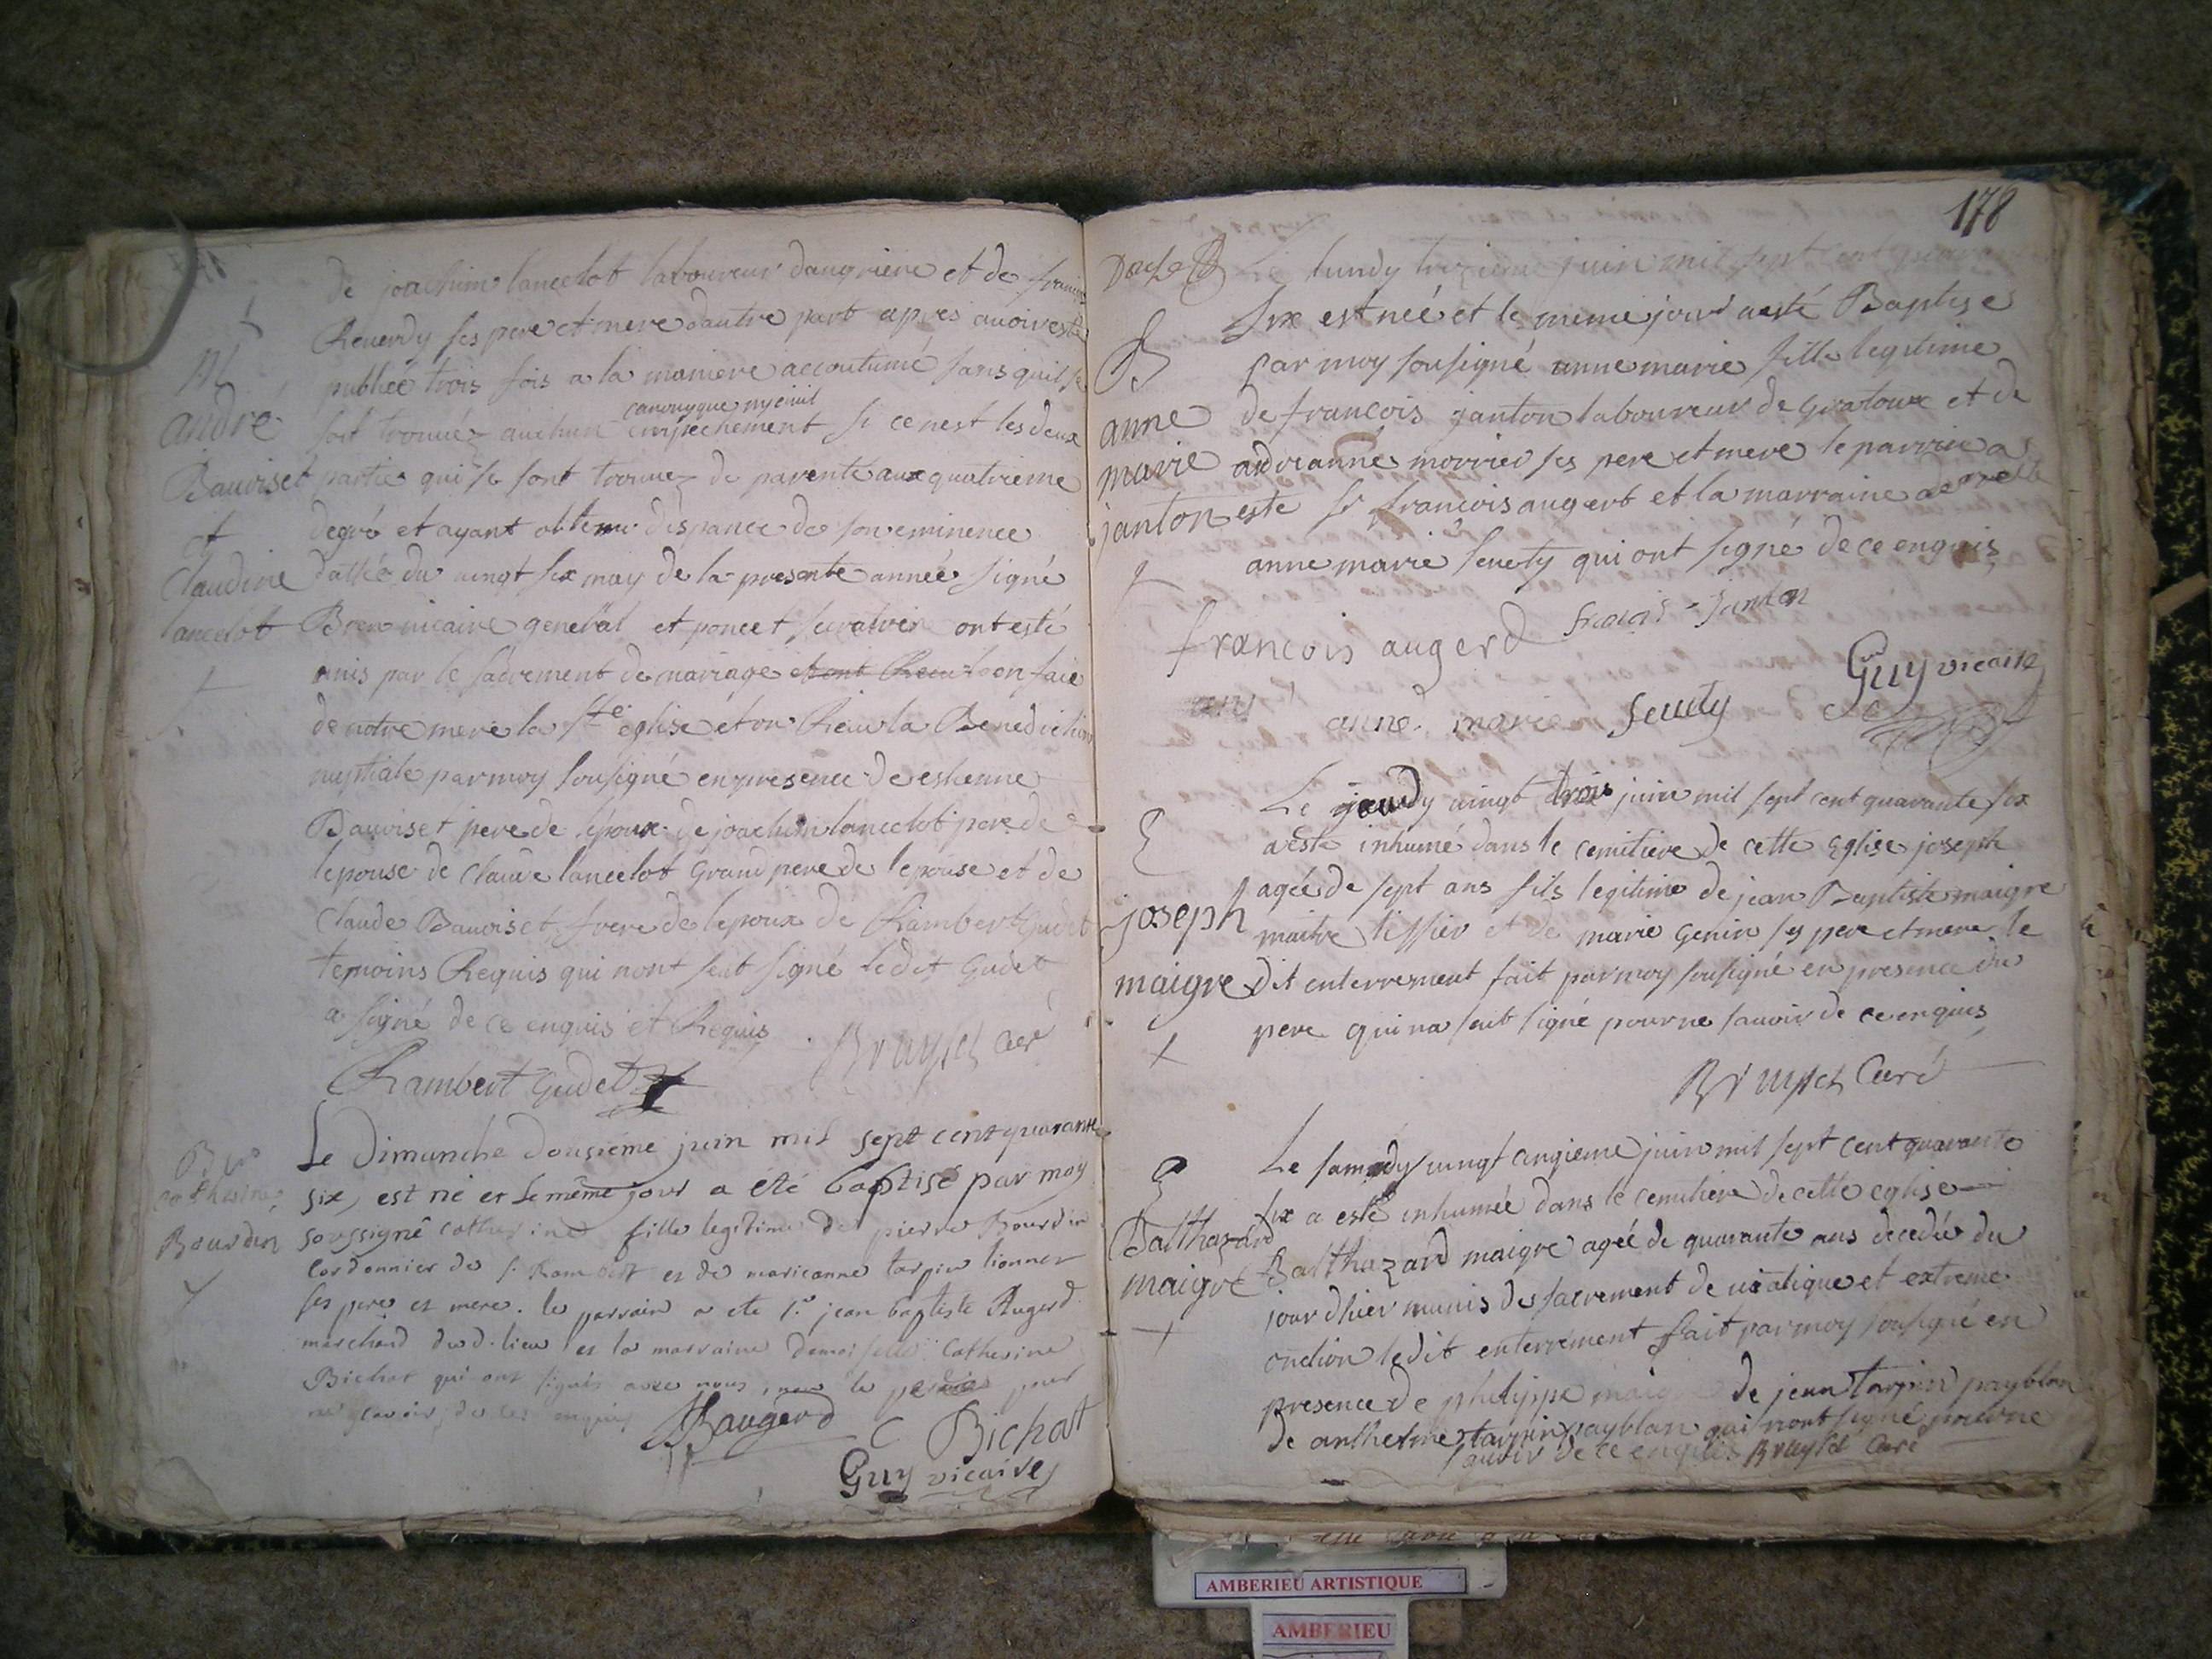 de joachim lancelot laboureur dangriere et de
Reuerdy ses pere et mere dautre part apres auoir esté
publieé trois fois a la maniere accoutumé sans quil se
canonyque ny ciuil
soit trouuéz auchun empechement si cenest les deux
partie qui se sont trouuez de parenté aux quatrieme
degré et ayant obtenu dispance de son eminence
dattée du uingt six may de la presente année signé
Bron uicaire general et poncet ont esté
unis par le sacrement de mariage et ont Receu en face
de notre mere la Ste eglise et on Receu la Benediction
nuptiale par moy sousigné en presence de estienne
Bauviset pere de lepoux de joachim lancelot pere de
lepouse de claude lancelot Grand pere de lepouse et de
Claude Bauviset frere de lepoux de Rambert Gudet
temoins Requis qui nont seut signé ledit Gudet
a signé de ce enquis et Requis
Bruyset curé
Rambert Gudet
M
andré
Bauviset
et
Claudine
lancelot
Le Dimanche dousiéme juin mil sept cent quarante
six, est né et le même jour a été baptisé par moy
soussigné catherine fille legitime de pierre Bourdin
Cordonnier de St Rambert et de marieanne tarpin lionnet
ses pere et mere. le parrain a ete Sr jean baptiste Augerd
marchand dud. lieu et la marraine demoiselle Catherine
Bichat qui ont signés avec nous, non le pere pour
ne scavoir, de ce enquis
JBaugerd
C Bichat
Guy vicaire
catherine
Bourdin
178
Le lundy trezieme juin mil sept cent quara
six est neé et le meme jour a esté Baptisé
par moy sousigné anne marie fille legitime
de françois janton laboureur de Gratoux et de
andreanne morrier ses pere et mere le parrin a
este sr francois augert et la marraine a esté
anne marie seuety qui ont signé de ce enquis
francois augerd
francois janton
Guy vicaire
anne marie seuety
B
anne
marie
janton
Le jeudy uingt trois juin mil sept cent quarante six
a esté inhumé dans le cemitiere de cette Eglise joseph
ageé de sept ans fils legitime de jean Baptiste maigre
maitre tissier et de marie Genin ses pere et mere le
dit enterrement fait par moy sousigné en presence du
pere qui na seut signé pour ne sauoir de ce enquis
Bruyset Curé
joseph
maigre
Le samedy uingt cinqieme juin mil sept cent quarante
six a esté inhumée dans le cemitiere de cette eglise
Balthazard maigre ageé de quarante ans decedée du
jour dhier munis des sacrement de uiatique et extreme
onction ledit enterrement fait par moy sousigné en
presence de philippe maigre de jean tarpin payblan
de anthelme tarpin payblan qui nont signé pour ne
sauoir de ce enquis Bruyset Curé
Balthazard
maigre
AMBERIEU ARTISTIQUE
AMBERIEU